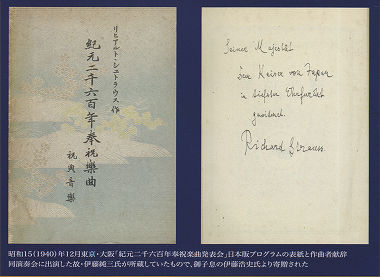 リヒアルト・シュトラウス作
紀元二千六百年奉祝樂曲
祝典音樂
Seiner Majestät
dem Kaiser von Japan
in tiefster Ehrfurcht
gewidmet.
Richard Strauss.
昭和15(1940)年12月東京・大阪「紀元二千六百年奉祝楽曲発表会」日本版プログラムの表紙と作曲者献辞
同演奏会に出演した故・伊藤純三氏が所蔵していたもので、御子息の伊藤浩史氏より寄贈された